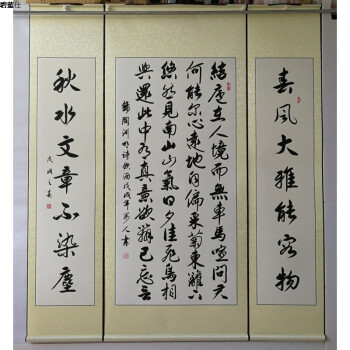 春風大雅能容物
結廬在人境而無車馬喧問君
何能尔心遠地自偏采菊東籬下
悠然見南山山氣日夕佳飛鳥相
與還此中有真意欲辯已忘言
錄陶渊明詩飲酒戊戌年人書
秋水文章不染塵
戊戌之春